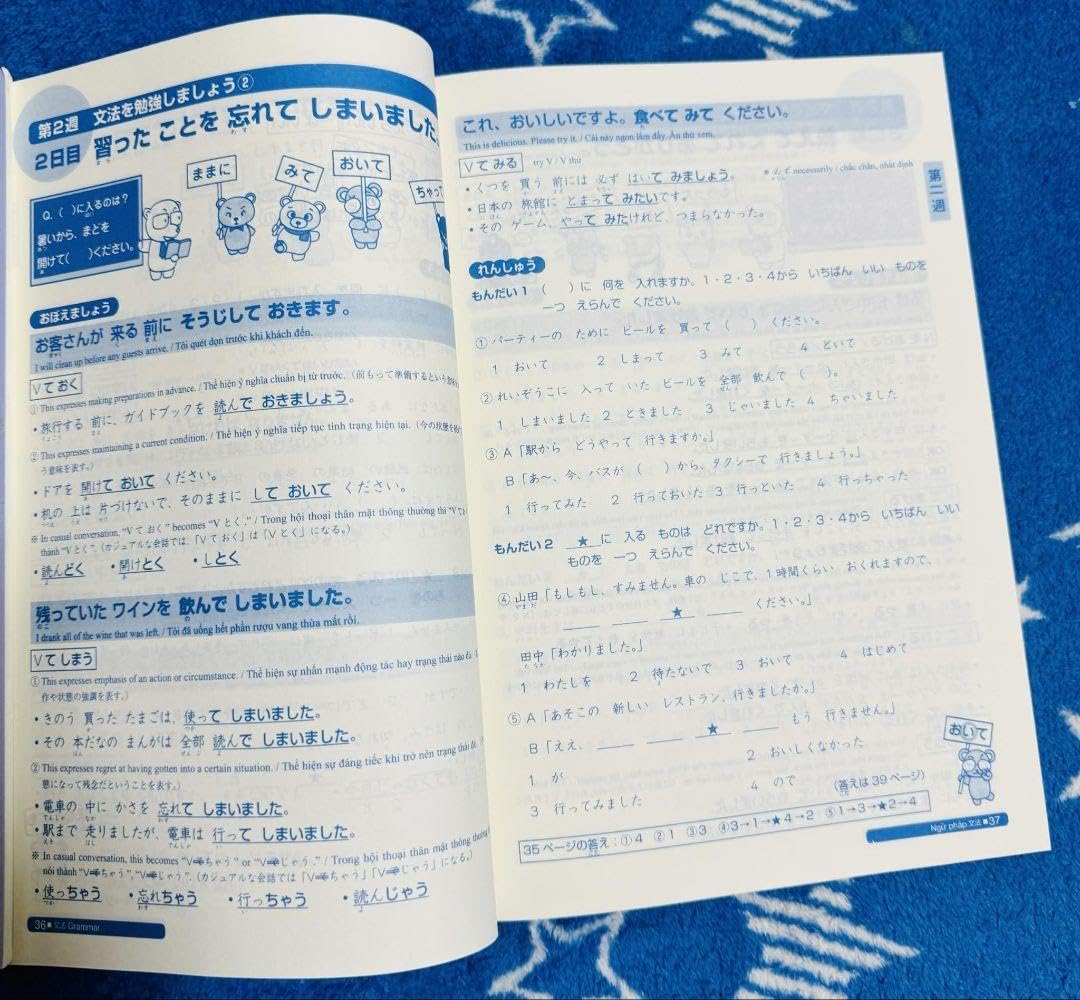 第2週 文法を勉強しましょう②
2日目 習った ことを 忘れて しまいました。
わす
ままに
みて
おいて
ちゃって
Q.( )に入るのは?
暑いから、まどを
開けて( )ください。
おぼえましょう
お客さんが 来る 前に そうじして おきます。
I will clean up before any guests arrive. / Tôi quét dọn trước khi khách đến.
Vて おく
① This expresses making preparations in advance. / Thể hiện ý nghĩa chuẩn bị từ trước.(前もって準備するという
・旅行する 前に、ガイドブックを 読んで おきましょう。
② This expresses maintaining a current condition. / Thể hiện ý nghĩa tiếp tục tình trạng hiện tại.(今の状態を
う意味を表す。)
・ドアを 開けて おいて ください。
・机の 上は 片づけないで、そのままに して おいて ください。
※ In casual conversation, “V て おく” becomes “V とく”. / Trong hội thoại thân mật thông thường thì “V て
thành “V とく”.(カジュアルな会話では「V て おく」は「V とく」になる。)
・読んどく ・開けとく ・しとく
残っていた ワインを 飲んで しまいました。
I drank all of the wine that was left. / Tôi đã uống hết phần rượu vang thừa mất rồi.
Vて しまう
① This expresses emphasis of an action or circumstance. / Thể hiện sự nhấn mạnh động tác hay trạng thái nào đó.
作や状態の強調を表す。)
・きのう 買った たまごは、使って しまいました。
・その 本だなの まんがは 全部 読んで しまいました。
② This expresses regret at having gotten into a certain situation. / Thể hiện sự đáng tiếc khi trở nên trạng thái đó.
態になって残念だということを表す。)
・電車の 中に かさを 忘れて しまいました。
・駅まで 走りましたが、電車は 行って しまいました。
※ In casual conversation, this becomes “Vてちゃう” or “Vでじゃう.” / Trong hội thoại thân mật thông thường
nói thành “Vてちゃう”, “Vでじゃう”.(カジュアルな会話では「Vてちゃう」「Vでじゃう」になる。)
・使っちゃう ・忘れちゃう ・行っちゃう ・読んじゃう
36 文法 Grammar
これ、おいしいですよ。食べて みて ください。
This is delicious. Please try it. / Cái này ngon lắm đấy. Ăn thử xem.
Vて みる try V / V thử
・くつを 買う 前には 必ず はいて みましょう。
*必ず necessarily / chắc chắn, nhất định
・日本の 旅館に とまって みたいです。
・その ゲーム、やって みたけれど、つまらなかった。
第二週
れんしゅう
もんだい1 ( )に 何を 入れますか。1・2・3・4から いちばん いい ものを
一つ えらんで ください。
① パーティーの ために ビールを 買って( )ください。
1 おいて 2 しまって 3 みて 4 といて
② れいぞうこに 入って いた ビールを 全部 飲んで( )。
1 しまいました 2 ときました 3 じゃいました 4 ちゃいました
③ A「駅から どうやって 行きますか。」
B「あ~、今、バスが( )から、タクシーで 行きましょう。」
1 行ってみた 2 行っておいた 3 行っといた 4 行っちゃった
もんだい2 ★ に 入る ものは どれですか。1・2・3・4から いちばん いい
ものを 一つ えらんで ください。
④ 山田「もしもし、すみません。車の じこで、1時間くらい おくれますので、
★ ください。」
田中「わかりました。」
1 わたしを 2 待たないで 3 おいて 4 はじめて
⑤ A「あそこの 新しい レストラン、行きましたか。」
B「ええ、 ★ もう 行きません。」
1 が 2 おいしくなかった
3 行ってみました 4 ので
(答えは39ページ)
おいて
35ページの答え:①4 ②1 ③3 ④3→1→★4→2 ⑤1→3→★2→4
Ngữ pháp 文法 37